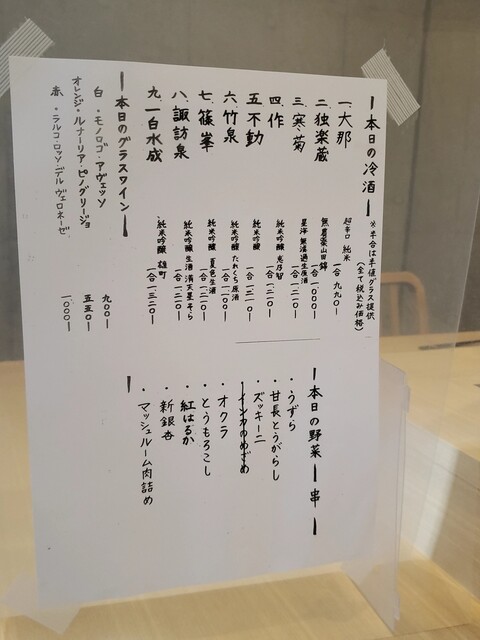 本日の冷酒
※半合は半値グラス提供
(全て税込み価格)
一、大那 超辛口 純米 一合 九九〇ー
二、独楽蔵 無農薬山田錦 一合 一、〇〇〇ー
三、寒菊 星海 無濾過生原酒 一合 一、二一〇ー
四、作 純米吟醸 恵乃智 一合 一、二一〇ー
五、不動 純米吟醸 一合 一、二一〇ー
六、竹泉 純米吟醸 たれくち原酒 一合 一、一〇〇ー
七、篠峯 純米吟醸 夏色生酒 一合 一、二一〇ー
八、諏訪泉 純米吟醸 生酒 満天星そら 一合 一、二一〇ー
九、一白水成 純米吟醸 雄町 一合 一、三二〇ー
本日のグラスワイン
白・モノロゴ・アヴェッソ 九〇〇ー
オレンジ・ルナーリア・ピノグリージョ 五五〇ー
赤・ラルコ・ロッソ・デル・ヴェロネーゼ 一、〇〇〇ー
本日の野菜 串
・うずら
・甘長とうがらし
・ズッキーニ
・インカのめざめ
・オクラ
・とうもろこし
・紅はるか
・新銀杏
・マッシュルーム肉詰め